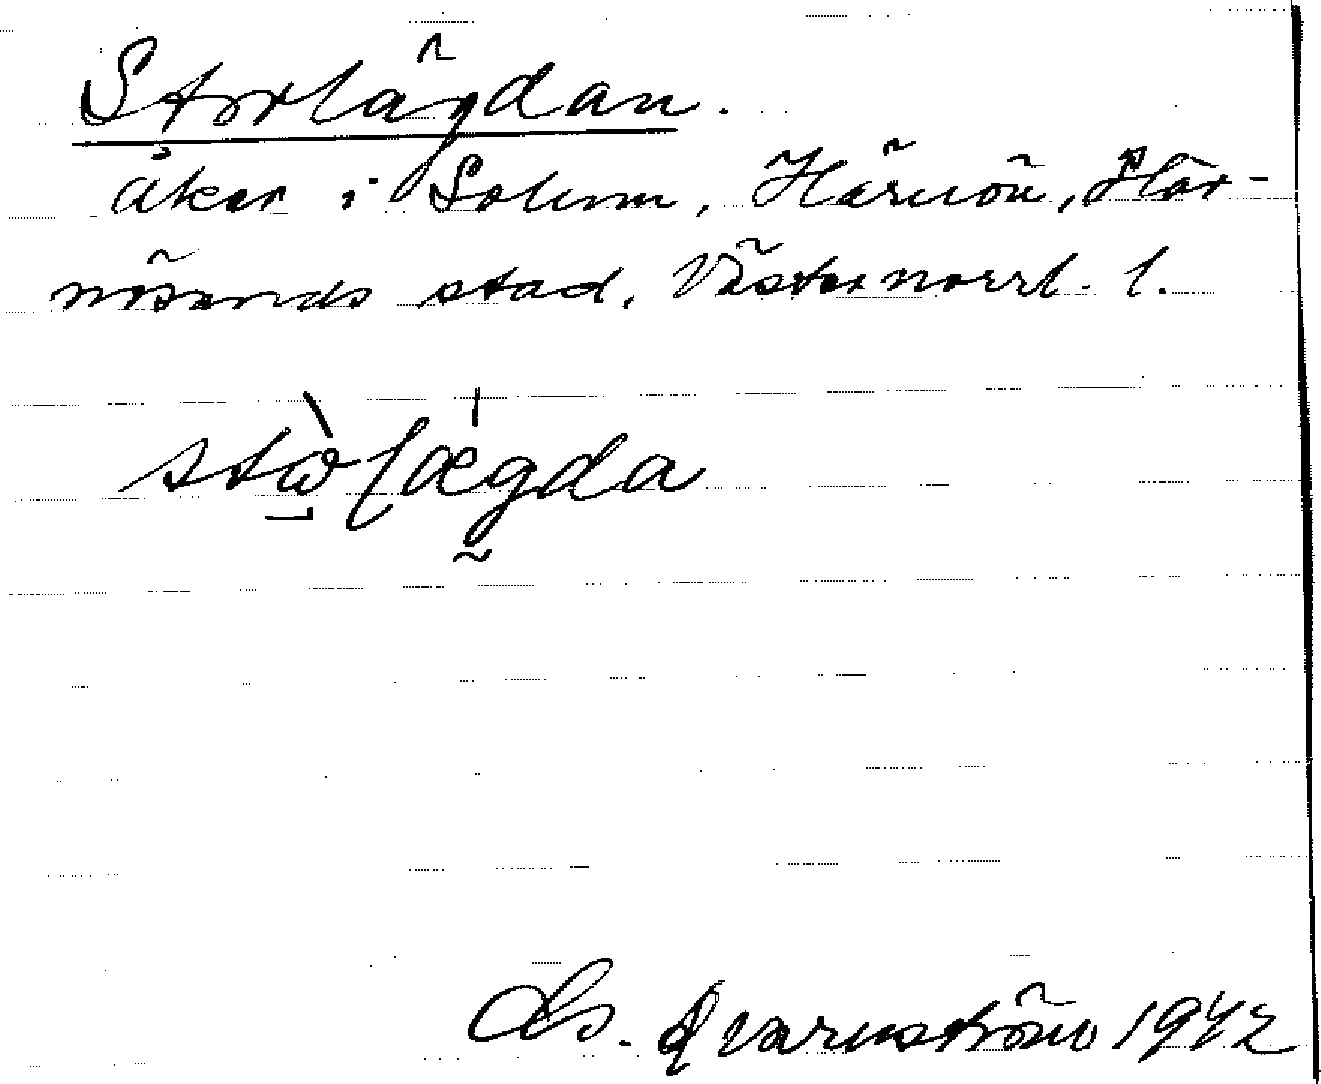 Storlägdan.
åker i Solum, Härnön, Här-
nösands stad, Västernorrl. l.
stὼ̱lǽgda
Qvarnström 1942